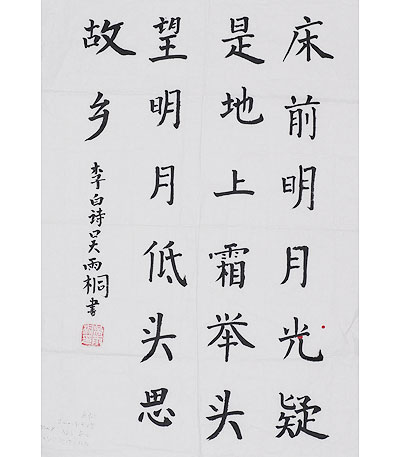 床前明月光疑
是地上霜举头
望明月低头思
故乡
李白诗吴雨桐书